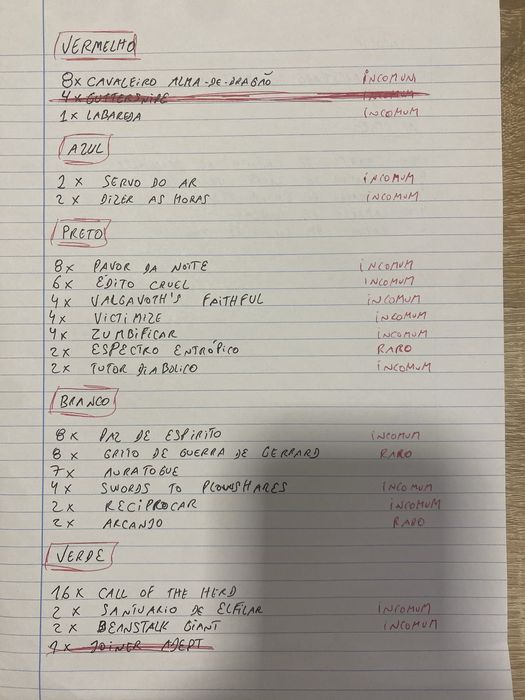 VERMELHO
8x CAVALEIRO ALMA-DE-DRAGÃO INCOMUM
4x GUTTERSNIPE INCOMUM
1x LABAREDA INCOMUM
AZUL
2x SERVO DO AR INCOMUM
2x DIZER AS HORAS INCOMUM
PRETO
8x PAVOR DA NOITE INCOMUM
6x ÉDITO CRUEL INCOMUM
4x VALGAVOTH'S FAITHFUL INCOMUM
4x VICTIMIZE INCOMUM
4x ZUMBIFICAR INCOMUM
2x ESPECTRO ENTRÓPICO RARO
2x TUTOR DIABOLICO INCOMUM
BRANCO
8x PAZ DE ESPIRITO INCOMUM
8x GRITO DE GUERRA DE GERRARD RARO
7x AURATOGUE
4x SWORDS TO PLOWSHARES INCOMUM
2x RECIPROCAR INCOMUM
2x ARCANJO RARO
VERDE
16x CALL OF THE HERD
2x SANTUARIO DE ELFILAR INCOMUM
2x BEANSTALK GIANT INCOMUM
1x JOINER ADEPT